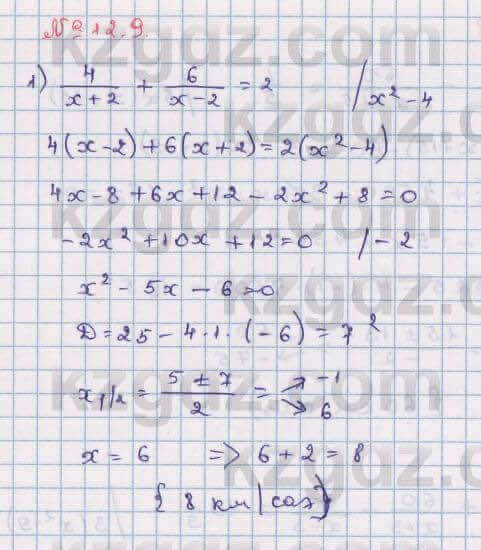 №12.9.
1) 4/(x+2) + 6/(x-2) = 2 | x² - 4
4(x-2)+6(x+2)=2(x²-4)
4x-8+6x+12-2x²+8=0
-2x²+10x+12=0 /-2
x²-5x-6=0
D=25-4·1·(-6)=7²
x₁/₂ = (5±7)/2 = ↗ -1 ↘ 6
x=6 => 6+2=8
{8 км/сағ}
kzgdz.com